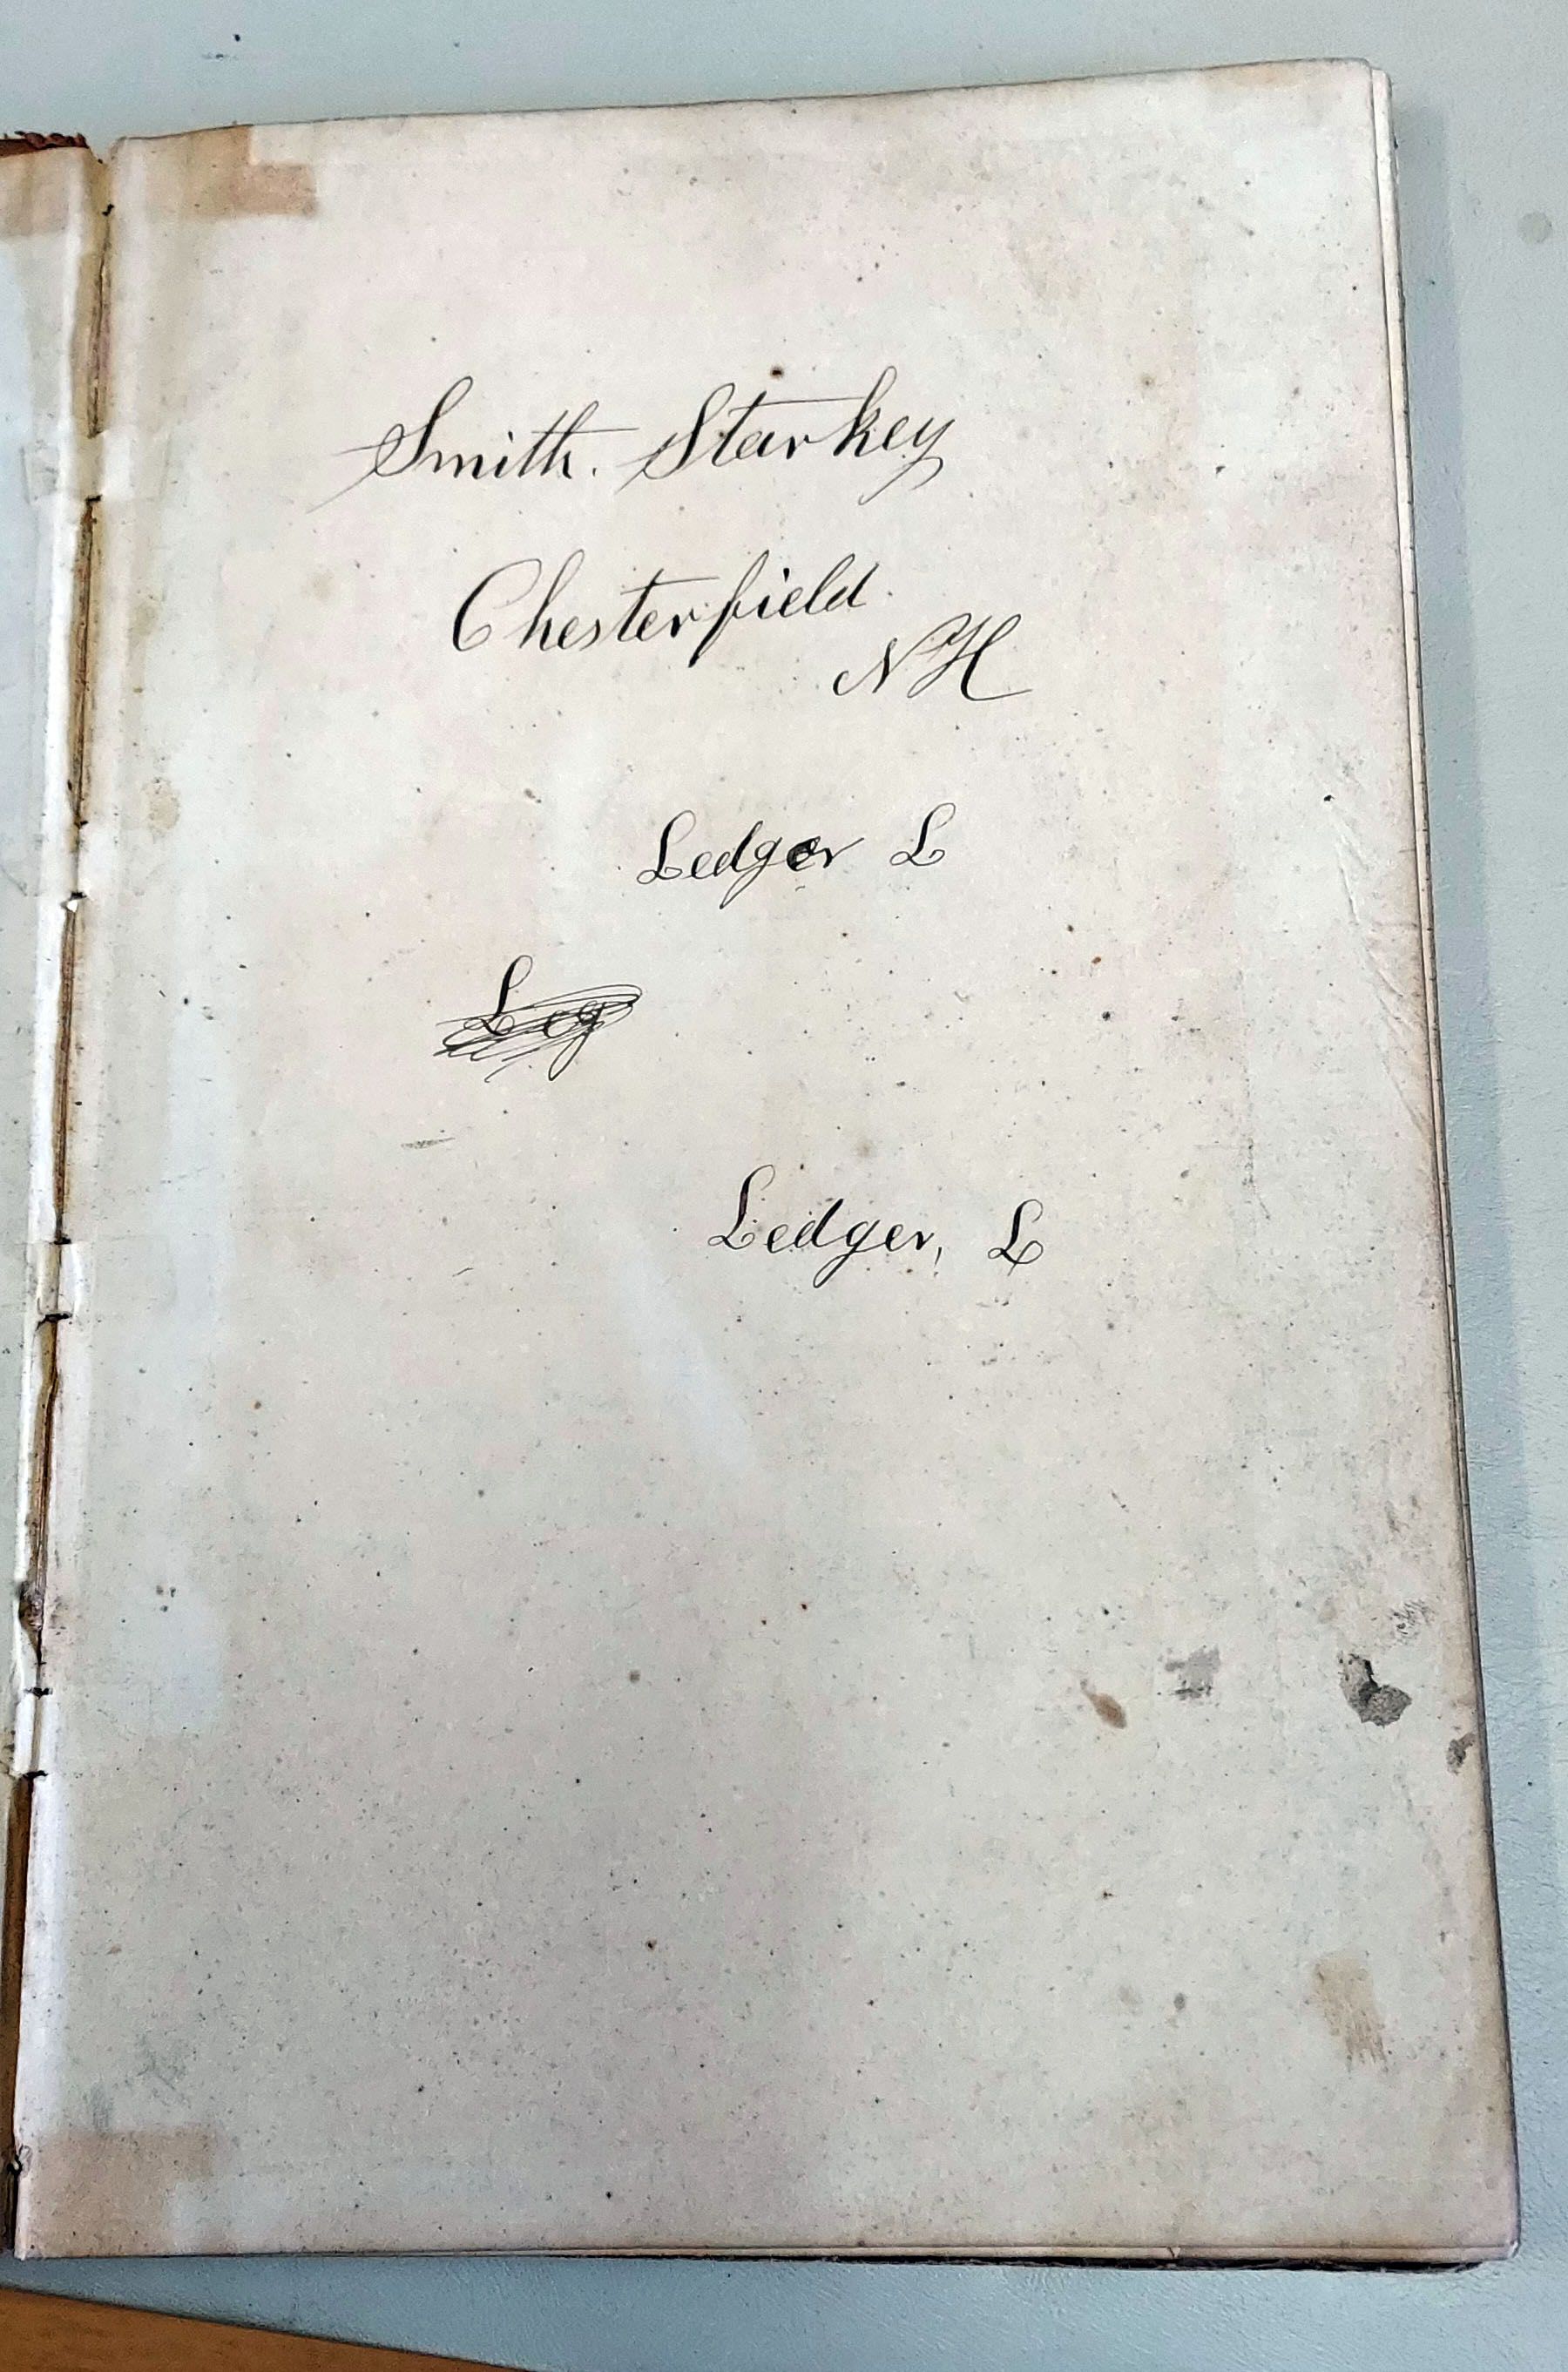 Smith. Starkey
Chesterfield.
NH
Ledger L
Leg
Ledger, L